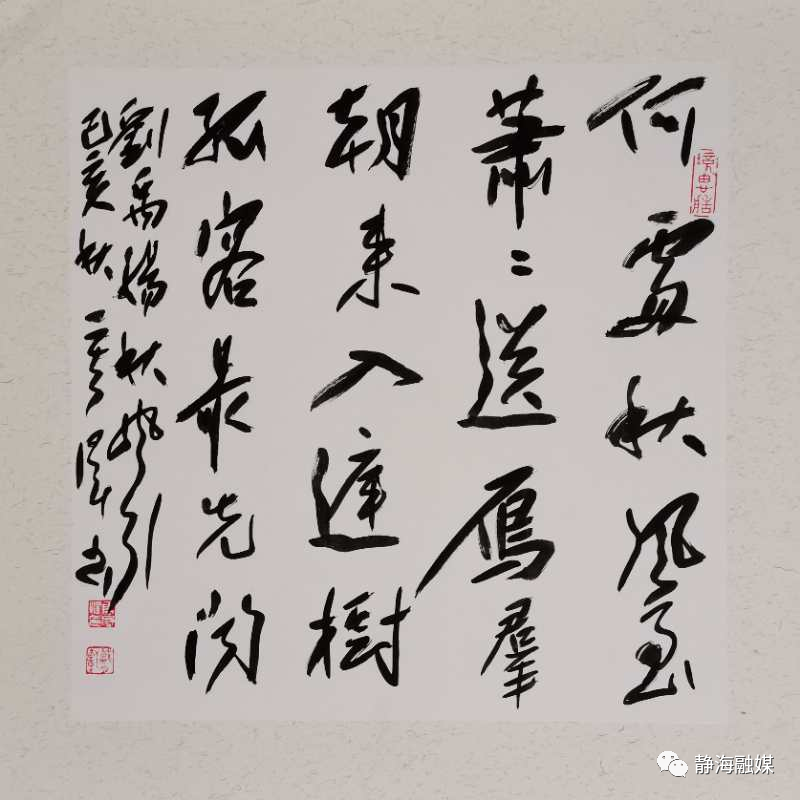 何處秋風至
蕭〻送鴈羣
朝来入庭樹
孤客最先闻
劉禹揚秋風引
己亥秋
静海融媒